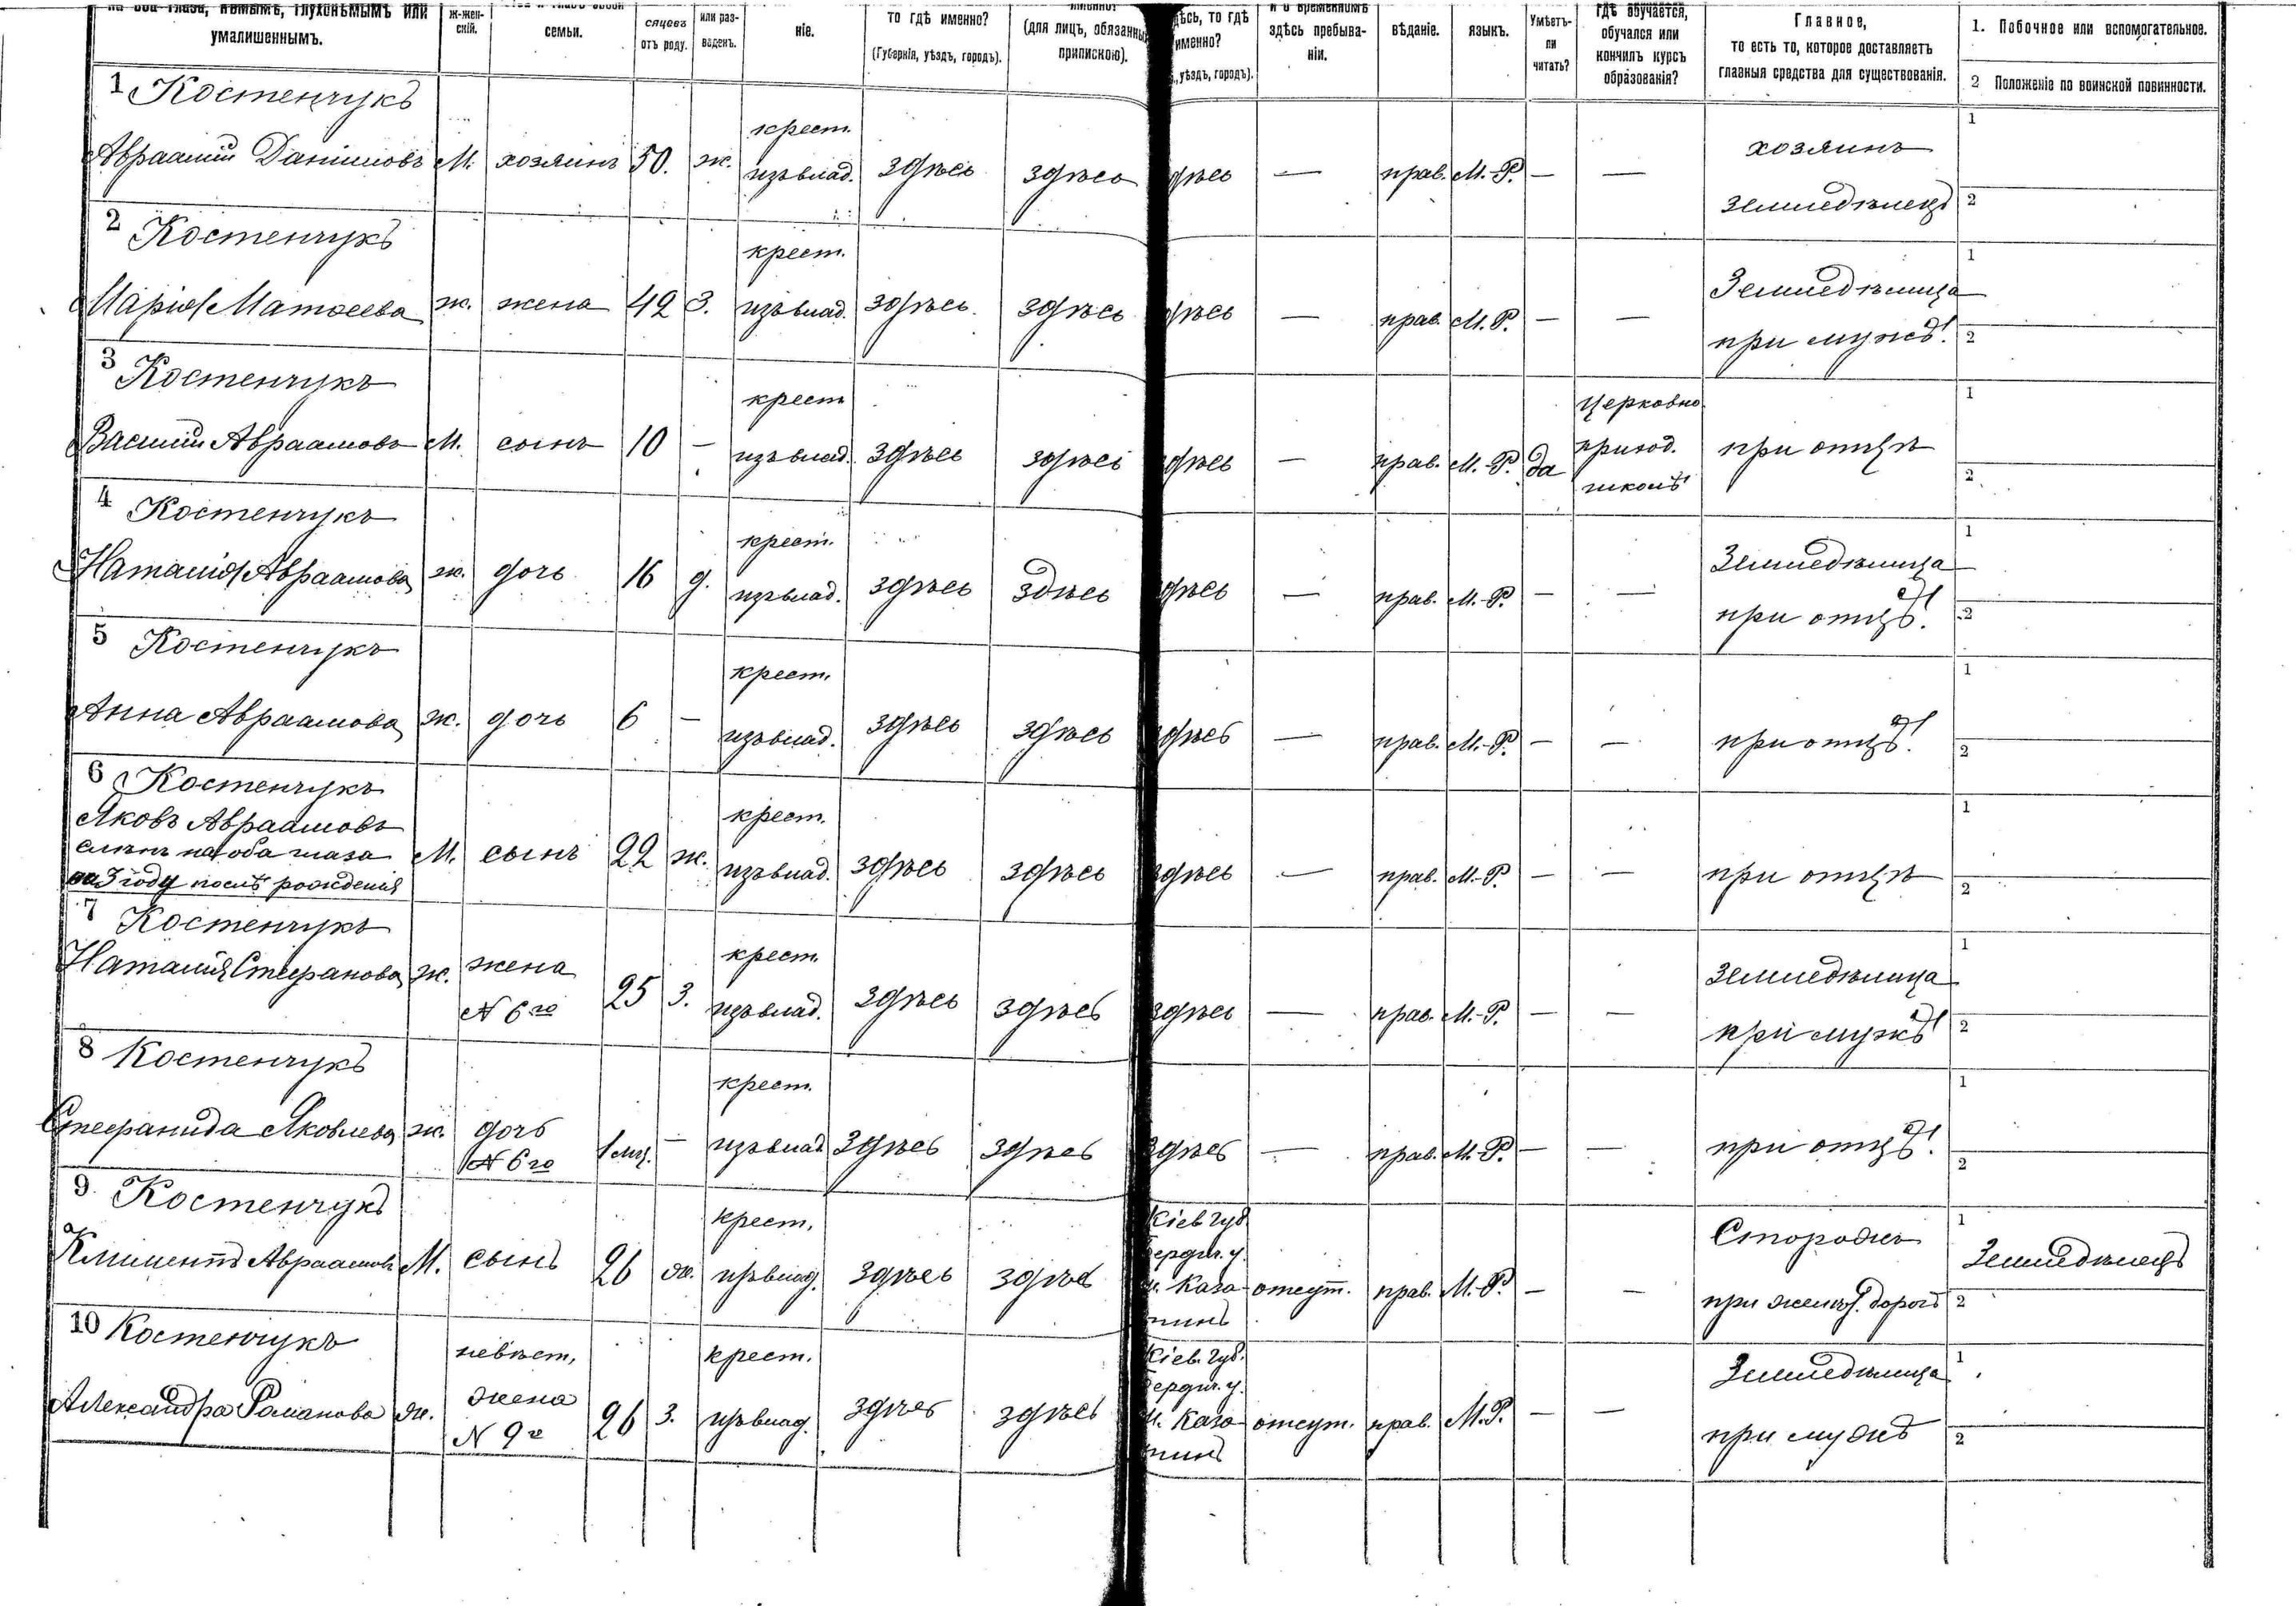 умалишеннымъ.
ж-жен-
скій.
семьи.
отъ роду.
или раз-
веденъ.
ніе.
то гдѣ именно?
(Губернія, уѣздъ, городъ).
(для лицъ, обязанны
припискою).
дѣсь, то гдѣ
именно?
, уѣздъ, городъ).
и о временномъ
здѣсь пребыва-
ніи.
вѣданіе.
языкъ.
Умѣетъ-
ли
читать?
гдѣ обучается,
обучался или
кончилъ курсъ
образованія?
Главное,
то есть то, которое доставляетъ
главныя средства для существованія.
1. Побочное или вспомогательное.
2 Положеніе по воинской повинности.
1 Костенчукъ
Авраамій Даниловъ М. хозяинъ 50. ж. крест. изъ влад. здѣсь здѣсь дѣсь — прав. М.-Р. — — хозяинъ земледѣлецъ 1 2
2 Костенчукъ
Марія Матѳеева ж. жена 42 З. крест. изъ влад. здѣсь здѣсь дѣсь — прав. М. Р. — — Земледѣлица при мужѣ 1 2
3 Костенчукъ
Василій Авраамовъ М. сынъ 10 — крест изъ влад. здѣсь здѣсь здѣсь — прав. М.-Р. да Церковно приход. школѣ при отцѣ 1 2
4 Костенчукъ
Наталія Авраамова ж. дочь 16 д. крест. изъ влад. здѣсь здѣсь здѣсь — прав. М.-Р. — — Земледѣлица при отцѣ 1 2
5 Костенчукъ
Анна Авраамова ж. дочь 6 — крест. изъ влад. здѣсь здѣсь здѣсь — прав. М.-Р. — — при отцѣ 1 2
6 Костенчукъ
Яковъ Авраамовъ
слѣпъ на оба глаза
на 3 году послѣ рожденія
М. сынъ 22 ж. крест. изъ влад. здѣсь здѣсь здѣсь — прав. М.-Р. — — при отцѣ 1 2
7 Костенчукъ
Наталія Стефанова ж. жена N 6го 25 З. крест. изъ влад. здѣсь здѣсь здѣсь — прав. М.-Р. — — земледѣлица при мужѣ 1 2
8 Костенчукъ
Стефанида Яковлева ж. дочь N 6го 1 мц. — крест. изъ влад здѣсь здѣсь здѣсь — прав. М.-Р. — — при отцѣ 1 2
9 Костенчукъ
Климентъ Авраамовъ М. сынъ 26 ж. крест. изъ влад. здѣсь здѣсь Кіев. губ. Бердич. у. м. Каза тинъ отсут. прав. М.-Р. — — Сторожъ при желѣз. дорогѣ 1 Земледѣлецъ 2
10 Костенчукъ
Александра Романова ж. невѣст. жена N 9г 26 З. крест. изъ влад. здѣсь здѣсь Кіев. губ. Бердич. у. м. Каза тинъ отсут. прав. М.Р. — — Земледѣлица при мужѣ 1 2